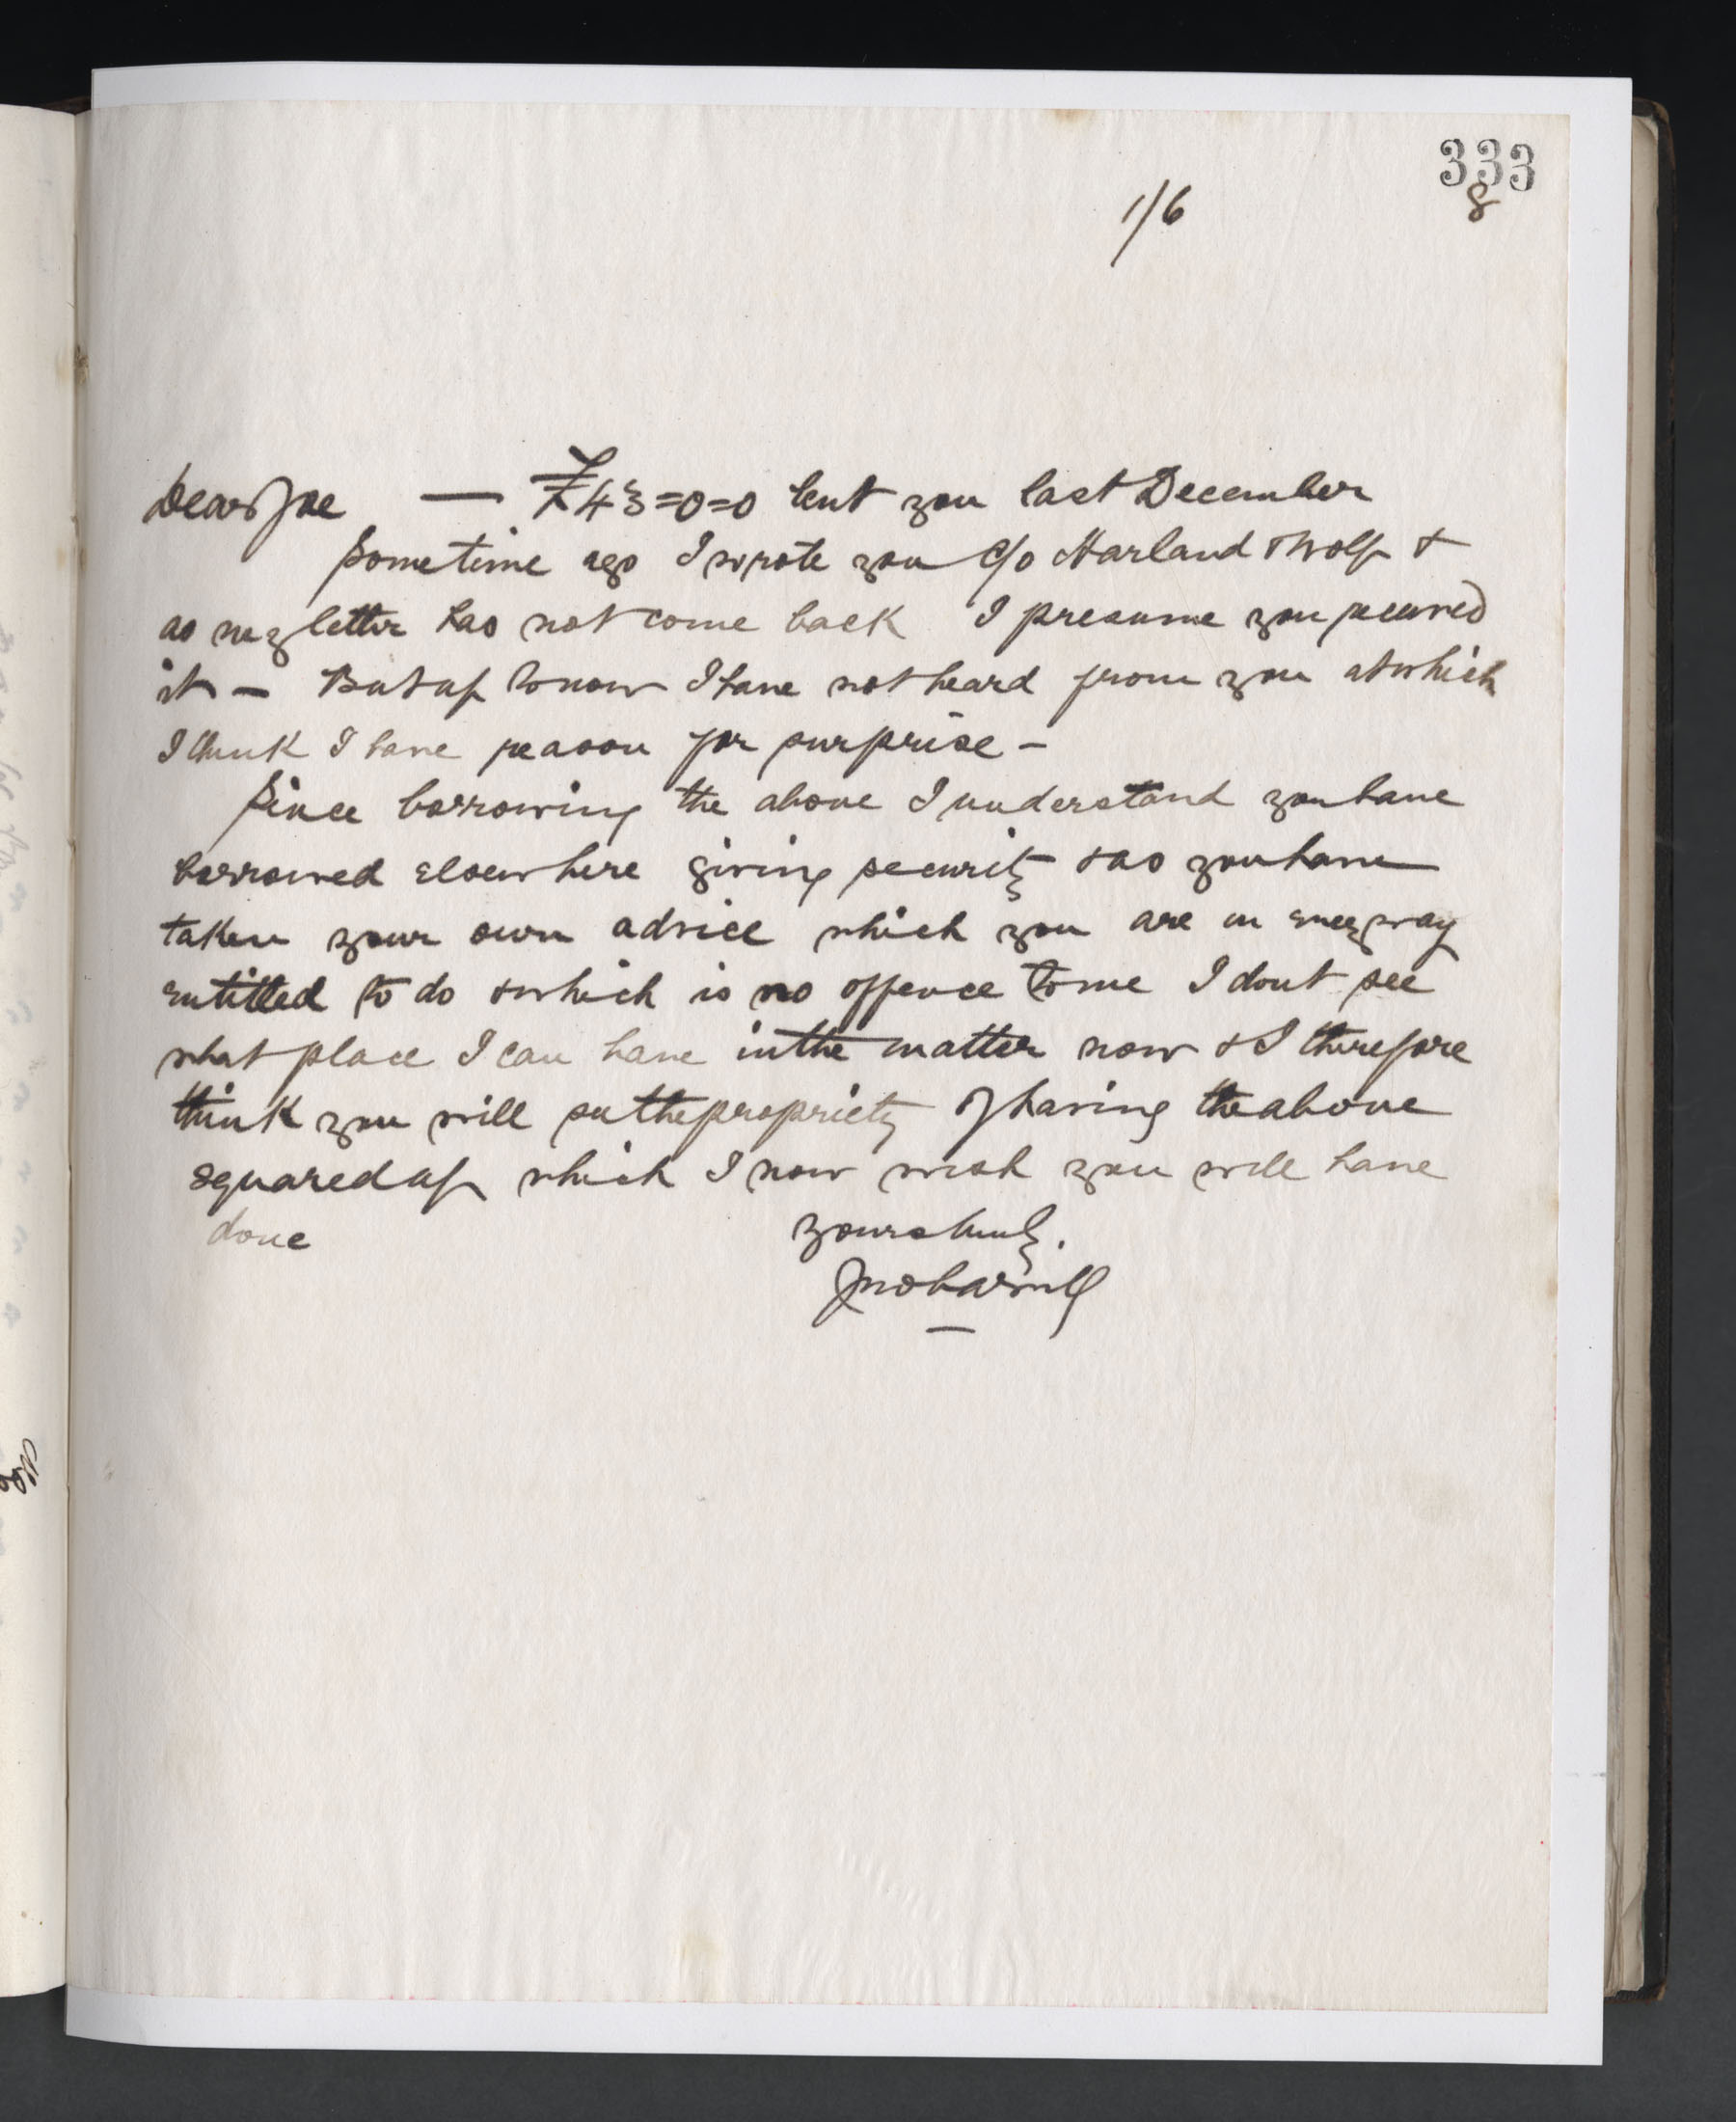 333
8
1/6
Dear Joe — £43=0=0 lent you last December
Sometime ago I wrote you c/o Harland & Wolf &
as my letter has not come back I presume you received
it – But up to now I have not heard from you at which
I think I have reason for surprise –
Since borrowing the above I understand you have
borrowed elsewhere giving security & as you have
taken your own advice which you are in every way
entitled to do & which is no offence to me I dont see
what place I can have in the matter now & I therefore
think you will see the propriety of having the above
squared up which I now wish you will have
done yours truly.